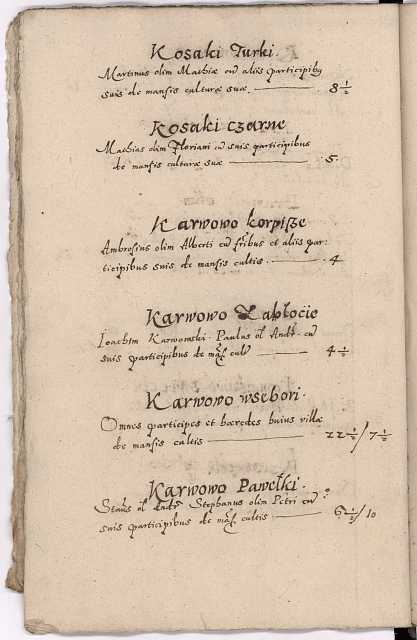 Kosaki Turki
Martinus olim Mathiæ cū aliis participibꝰ
suis de mansis culturæ suæ. 8 1/2
Kosaki czarne
Mathias olim Floriani cū suis participibus
de mansis culturæ suæ 5.
Karwowo korpisze
Ambrosius olim Alberti cū fr̄ibus et aliis par:
ticipibus suis de mansis cultis. 4
Karwowo Zabłocie
Ioachim Karwowski Paulus ol Andr. cū
suis participibus de māſ cult 4 1/2
Karwowo wsebori.
Omnes participes et hæredes huius villæ
de mansis cultis 22 1/2 / 7 1/2
Karwowo Pawełki.
Stans ol Andr Stephanus olim Petri cū
suis participibus de māſ cultis 6 1/2 / 10